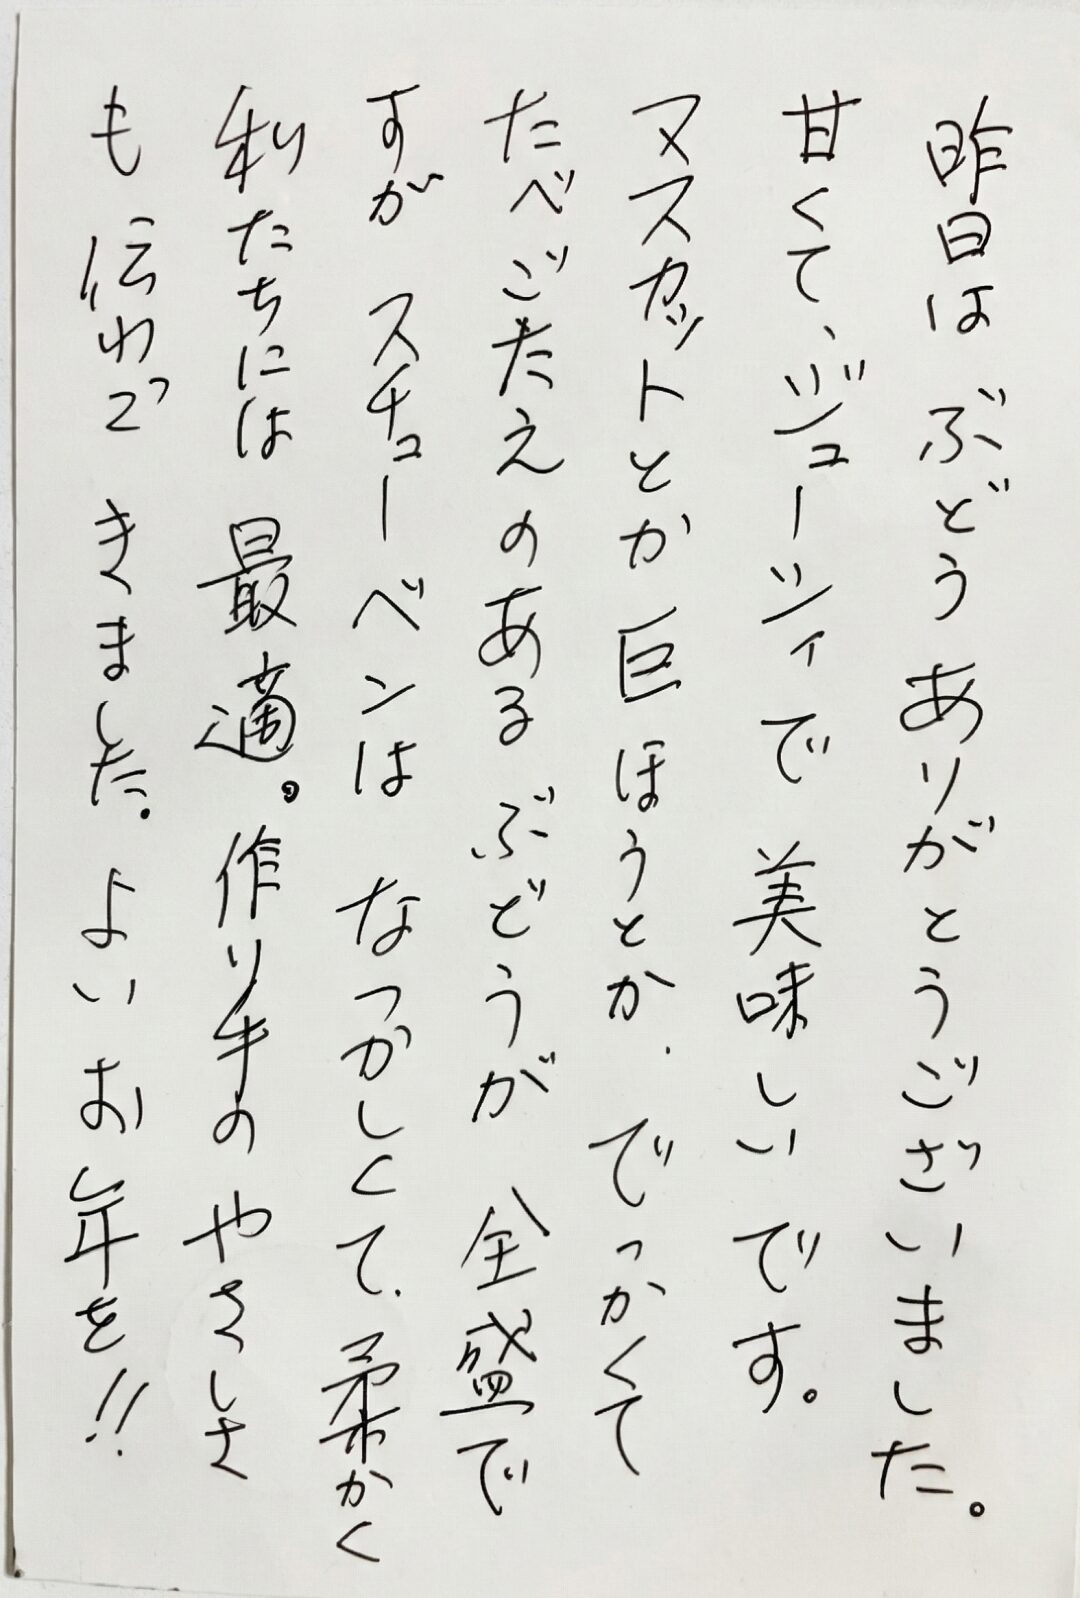 昨日はぶどうありがとうございました。
甘くて、ジューシィで美味しいです。
マスカットとか巨ほうとか、でっかくて
たべごたえのあるぶどうが全盛で
すがスチューベンはなつかしくて、柔かく
私たちには最適。作り手のやさしさ
も伝わできました。よいお年を!!